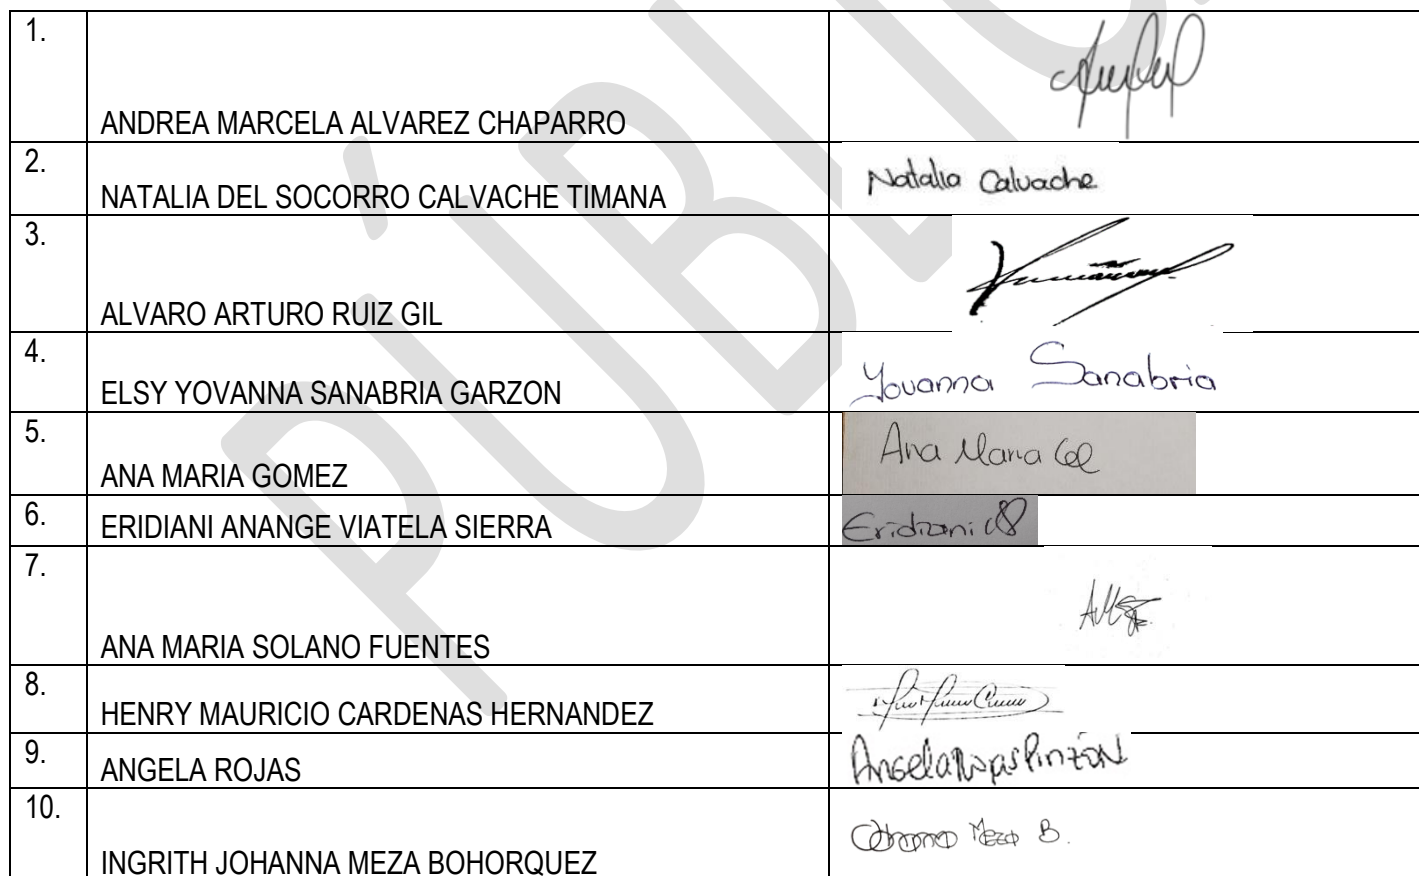 1.
ANDREA MARCELA ALVAREZ CHAPARRO
2.
NATALIA DEL SOCORRO CALVACHE TIMANA
Natalia Calvache
3.
ALVARO ARTURO RUIZ GIL
4.
ELSY YOVANNA SANABRIA GARZON
Yovanna Sanabria
5.
ANA MARIA GOMEZ
Ana Maria
6.
ERIDIANI ANANGE VIATELA SIERRA
Eridiani
7.
ANA MARIA SOLANO FUENTES
8.
HENRY MAURICIO CARDENAS HERNANDEZ
9.
ANGELA ROJAS
Angela Rojas Pinzón
10.
INGRITH JOHANNA MEZA BOHORQUEZ
Meza B.